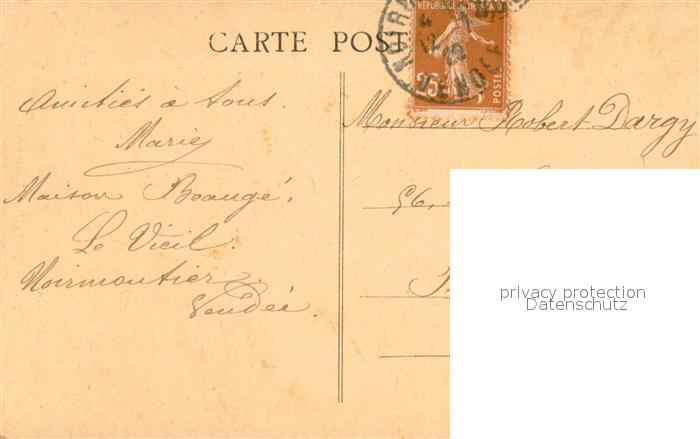 CARTE POST
RÉPUBLIQUE FRANÇAISE
25
POSTES
VENDÉE
Amitiés à tous.
Marie
Maison Beaugé,
Le Vieil.
Noirmoutier.
Vendée.
Monsieur Robert Dargy
56,
privacy protection
Datenschutz